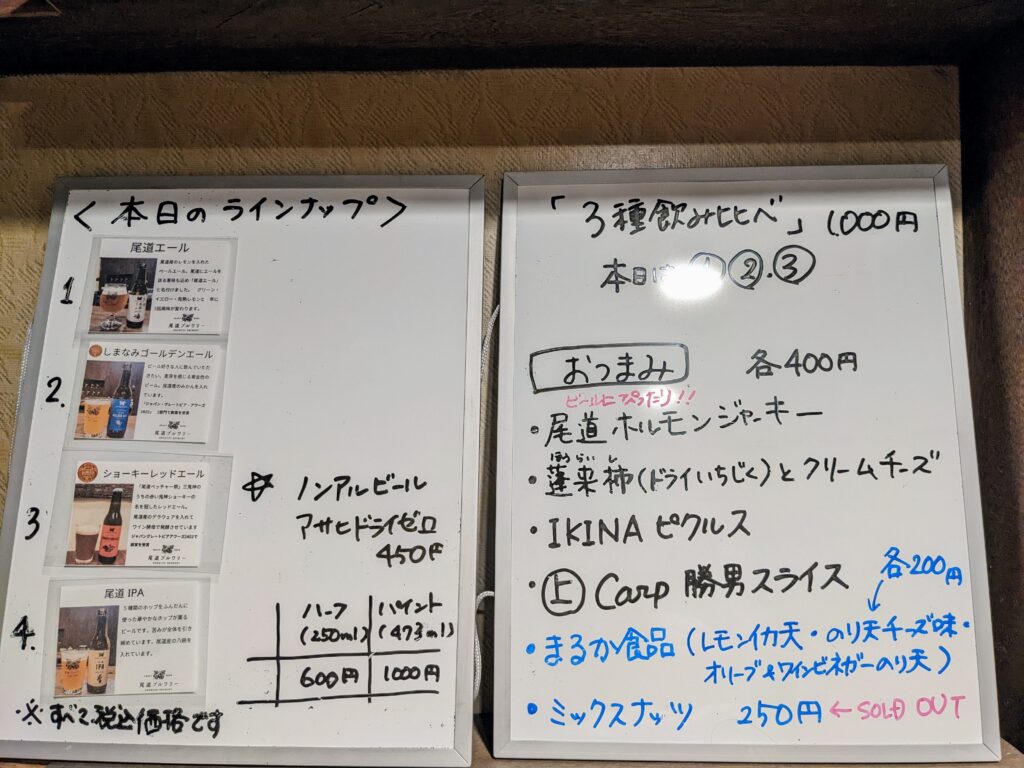 〈本日のラインナップ〉
1
尾道エール
尾道産のレモンを入れた
ペールエール。尾道にエールを
送る意味も込め「尾道エール」
と名付けました。 グリーン・
イエロー・完熟レモンと 年に
3回風味が変わります。
尾道ブルワリー
2.
しまなみゴールデンエール
ビール好きな人に飲んでいただ
きたい、麦芽を感じる黄金色の
ビール。尾道産のみかんを入れ
ています。
「ジャパン・グレートビア・アワーズ
2022」 2部門で銅賞を受賞
尾道ブルワリー
3
ショーキーレッドエール
「尾道ベッチャー祭」三鬼神の
うちの赤い鬼神ショーキーの
名を冠したレッドエール。
尾道産のデラウェアを入れて
ワイン酵母で発酵させています
ジャパングレートビアアワーズ2022で
銅賞を受賞
尾道ブルワリー
4.
尾道 IPA
5種類のホップをふんだんに
使った華やかなホップが薫る
ビールです。苦みが全体を引き
締めています。尾道産の八朔を
入れています。
尾道ブルワリー
☆ ノンアルビール
アサヒドライゼロ
450円
ハーフ
(250ml)
パイント
(473ml)
600円
1000円
※すべて税込価格です
「3種飲み比べ」 1,000円
本日は ①②.③
おつまみ 各400円
ビールにぴったり!!
・尾道ホルモンジャーキー
ほうらいし
・蓬莱柿(ドライいちじく)とクリームチーズ
・IKINAピクルス
・㊤Carp 勝男スライス
各200円
・まるか食品(レモンイカ天・のり天チーズ味・
オリーブ&ワインビネガーのり天)
・ミックスナッツ 250円 ← SOLD OUT